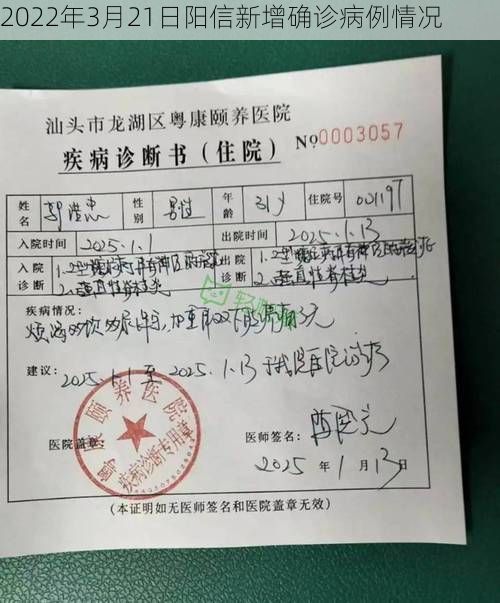 2022年3月21日阳信新增确诊病例情况
汕头市龙湖区粤康颐养医院
疾病诊断书(住院) №0003057
姓名 性别 男性 年龄 31岁 住院号 001197
入院时间 2025.1.1 出院时间 2025.1.13
入院诊断 1.2型糖尿病 出院诊断 1.2型糖尿病
2.强直性脊柱炎 2.强直性脊柱炎
疾病情况:
建议: 2025.1.1 至 2025.1.13 于我院住院治疗
粤康颐养医院
疾病诊断专用章
医院盖章: 医师签名:
2025年1月13日
(本证明如无医师签名和医院盖章无效)